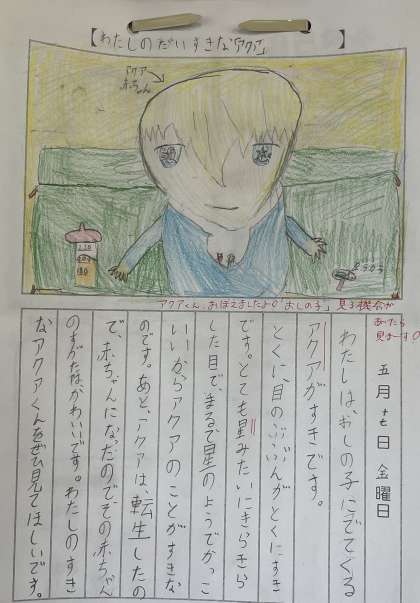 【わたしのだいすきな「アクア」】
アクア
赤ちゃん
アクアくん、おぼえましたよ♡「おしの子」見る機会が
あったら
見ま〜す♡
五月十七日 金曜日
わたしは、おしの子にでてくる
アクアがすきです。
とくに、目のぶぶんがとくにすき
です。とても星みたいにきらきら
した目で、まるで星のようでかっこ
いいからアクアのことがすきな
のです。あと、アクアは、転生したの
で、赤ちゃんになったのでその赤ちゃん
のすがたが、かわいいです。わたしのすき
なアクアくんをぜひ見てほしいです。